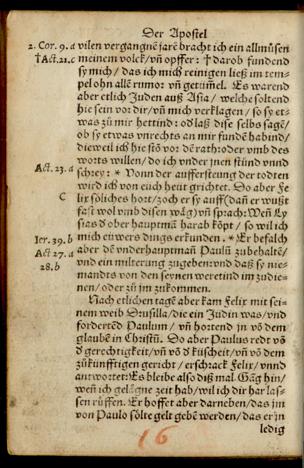 Der Apostel
2. Cor. 9. a vilen vergangnē jarē bracht ich ein allmůsen
†Act. 21. c meinem volck/vn̄ opffer: †darob fundend
sy mich/das ich mich reinigen ließ im tem-
pel ohn allē rumor vn̄ getum̄el. Es warend
aber etlich Juden auß Asia/welche soltend
hie sein vor dir/vn̄ mich verklagen/so sy et-
was zů mir hettind: od laß dise selbs sagē/
ob sy etwas vnrechts an mir fundē habind/
dieweil ich hie stō vor dē rath: oder vmb des
worts willen/do ich vnder jnen stůnd vnnd
Act. 23. a schrey: * Vonn der aufferstеung der todten
wird ich von euch heut grichtet. Do aber Fe
C lix söliches hort/zoch er sy auff (dañ er wußt
fast wol vmb disen wäg) vn̄ sprach: Weñ Ly
sias d oberhauptmā harab kōpt/so wil ich
Ier. 39. b mich euwers dings erkunden. * Er befalch
Act 27. a aber dē vnderhauptman Paulū zubehaltē/
28. b vnd ein milterung zugeben: vnd daß sy nie-
mandts von den seynen weretind im zudie-
nen/oder zů jm zukommen.
Nach etlichen tagē aber kam Felix mit sei-
nem weib Drusilla/die ein Jüdin was/vnd
fordertēd Paulum/vn̄ hortend jn vō dē
glaubē in Christū. Do aber Paulus redt vō
d gerechtigkeit/vn̄ vō d küscheit/vn̄ vō dem
zůkünfftigen gericht/erschrack Felix/vnnd
antwortet: Es bleibe also diß mal. Gāg hin/
weñ ich gelägne zeit hab/wil ich dir har las-
sen rüffen. Er hoffet aber darneben/das jm
von Paulo sölte gelt gebē werden/das er jn
ledig
16